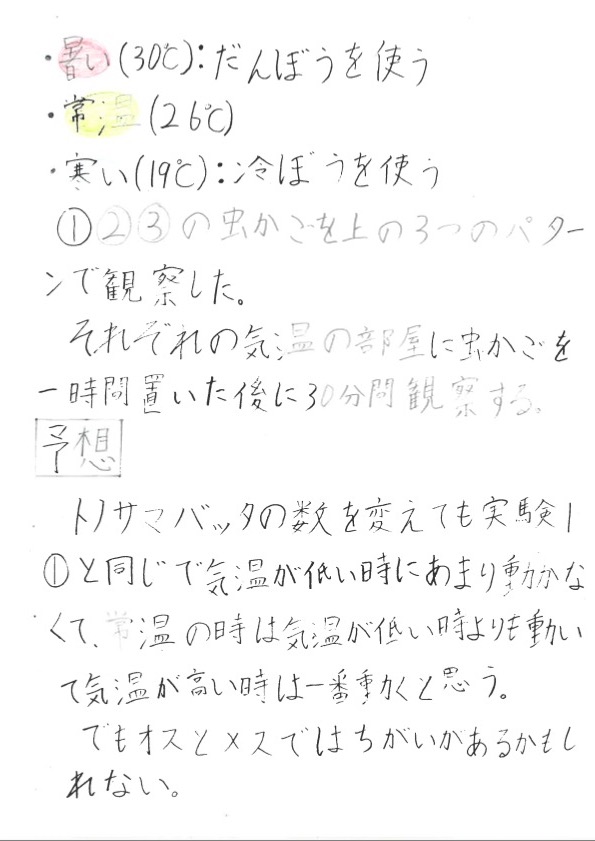 ・暑い(30℃):だんぼうを使う
・常温(26℃)
・寒い(19℃):冷ぼうを使う
①②③の虫かごを上の3つのパター
ンで観察した。
それぞれの気温の部屋に虫かごを
一時間置いた後に30分間観察する。
予想
トノサマバッタの数を変えても実験1
①と同じで気温が低い時にあまり動かな
くて、常温の時は気温が低い時よりも動い
て気温が高い時は一番動くと思う。
でもオスとメスではちがいがあるかもし
れない。